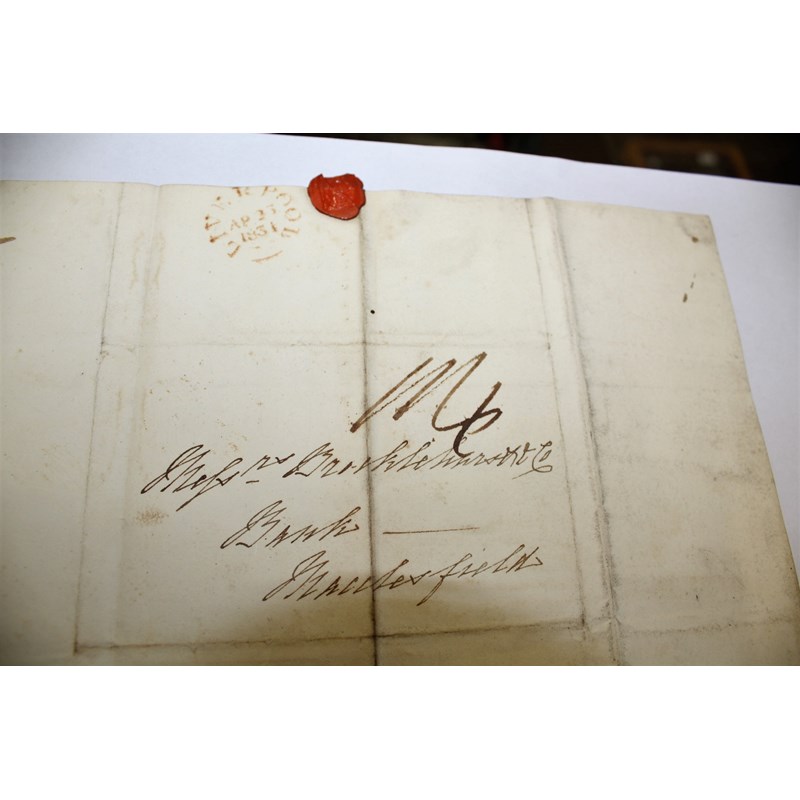 LIVERPOOL
AP 25
1831
Messrs Brocklehurst & Co
Bank
Macclesfield